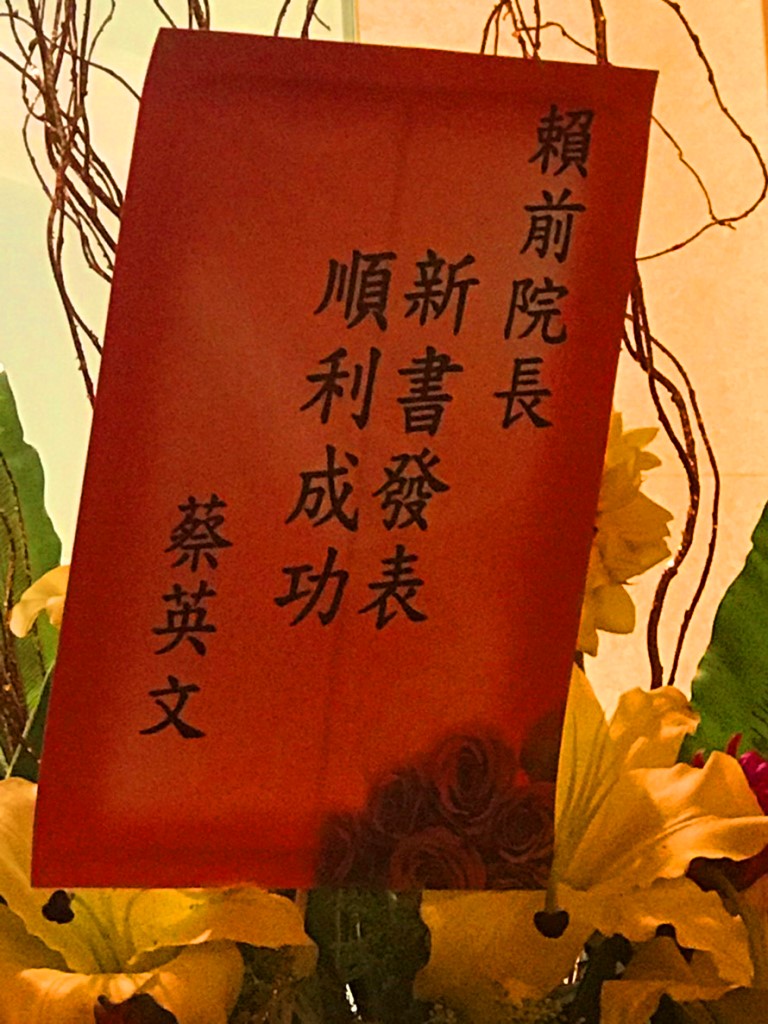 賴前院長
新書發表
順利成功
蔡英文